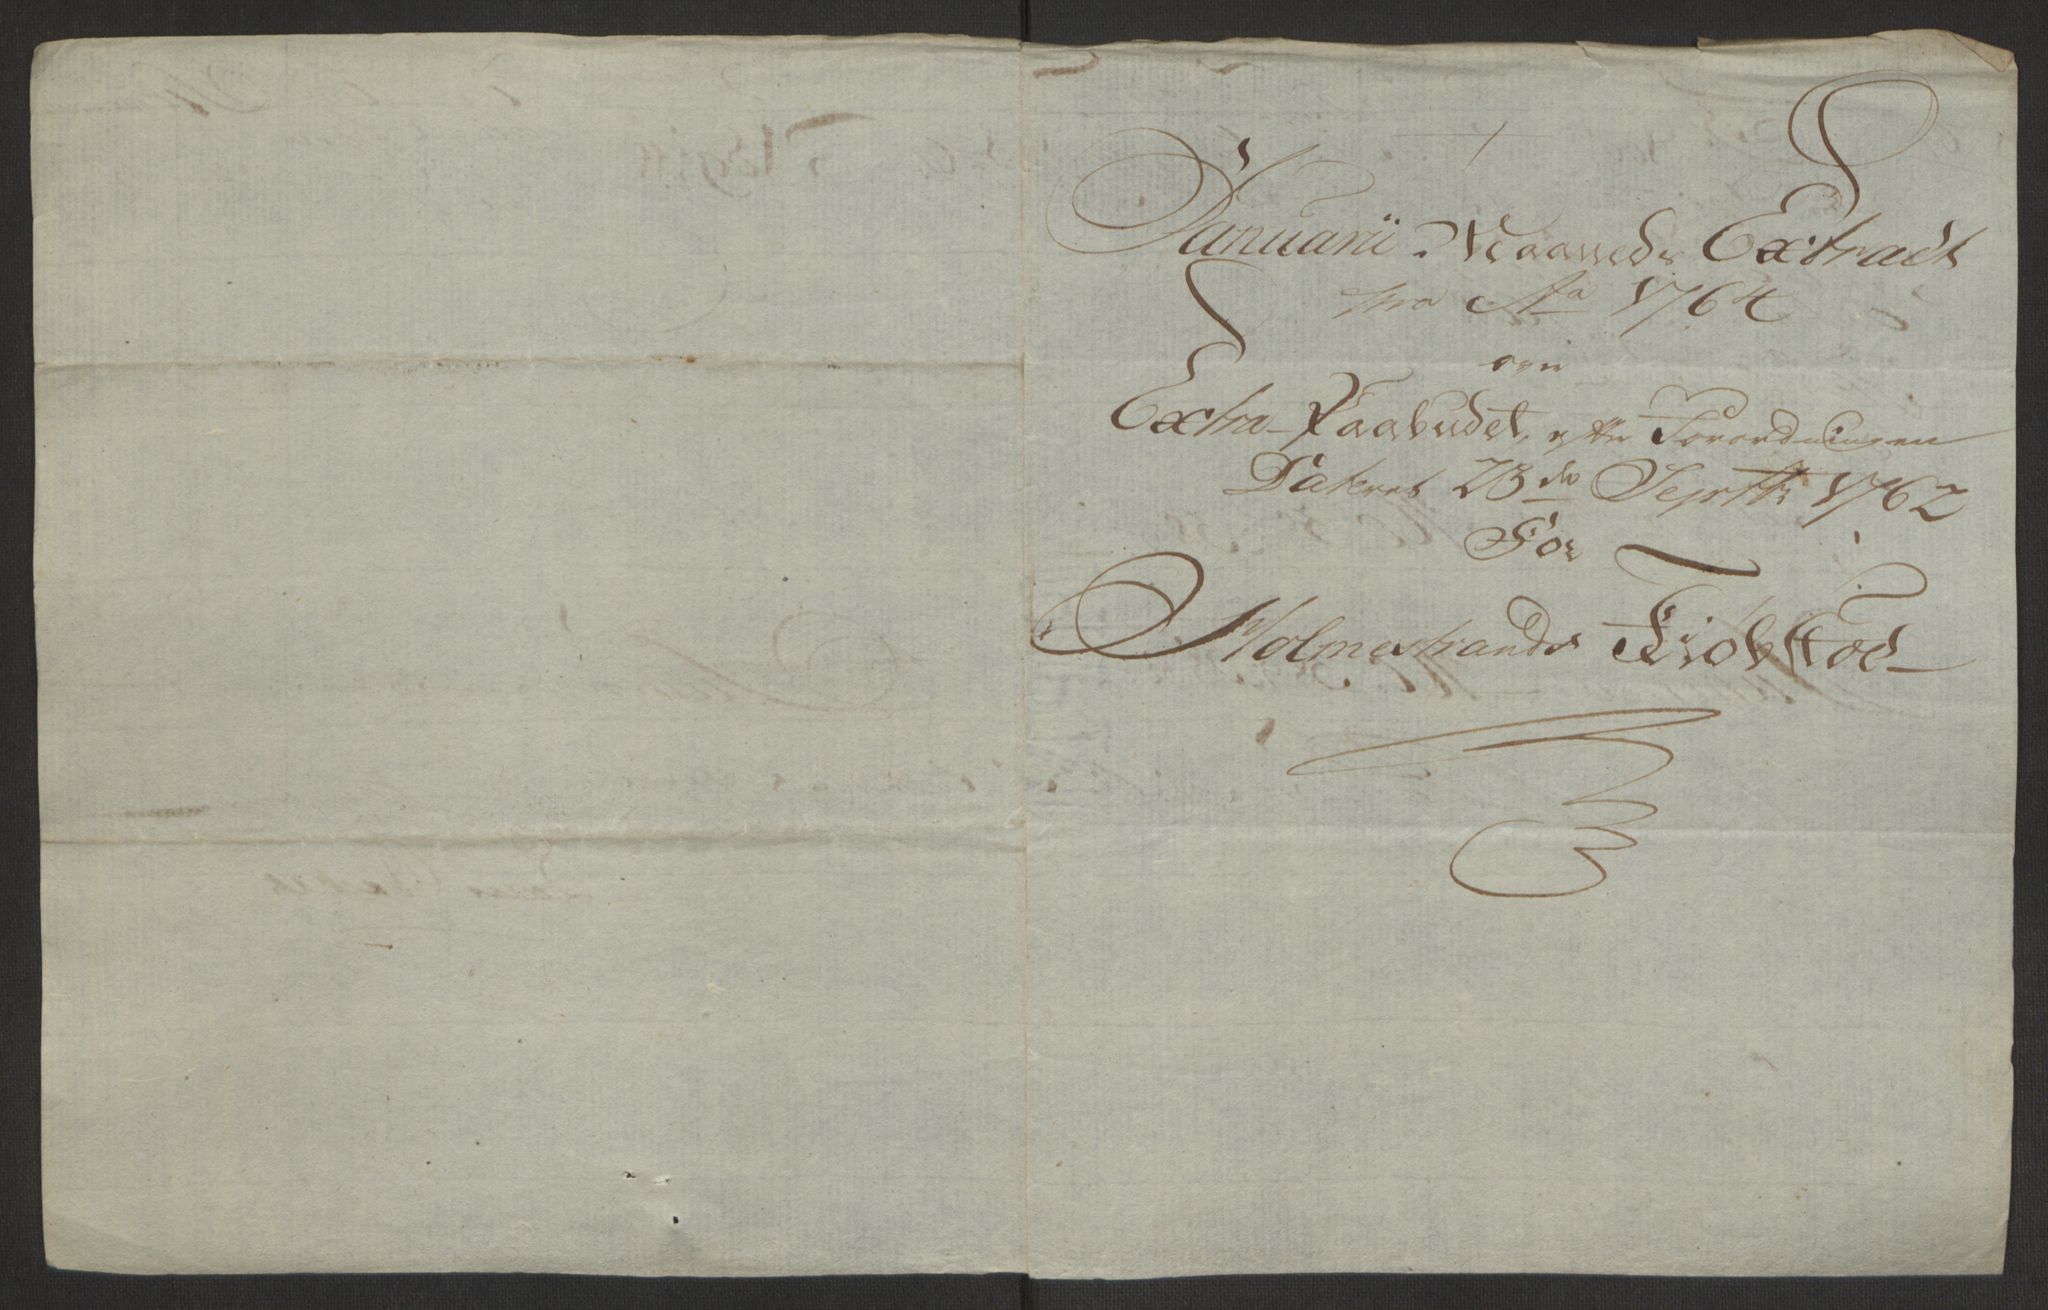 Januarii Maaneds Extract
pro Ao 1764
over
Extra-Paabudet, efter Forordningen
Dateret 23de Septbr 1762
For
Holmestrands Kiøbstæd